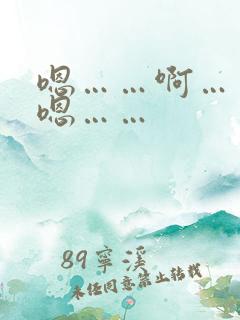 嗯……啊…
嗯……
89寧溪
未经同意禁止转载